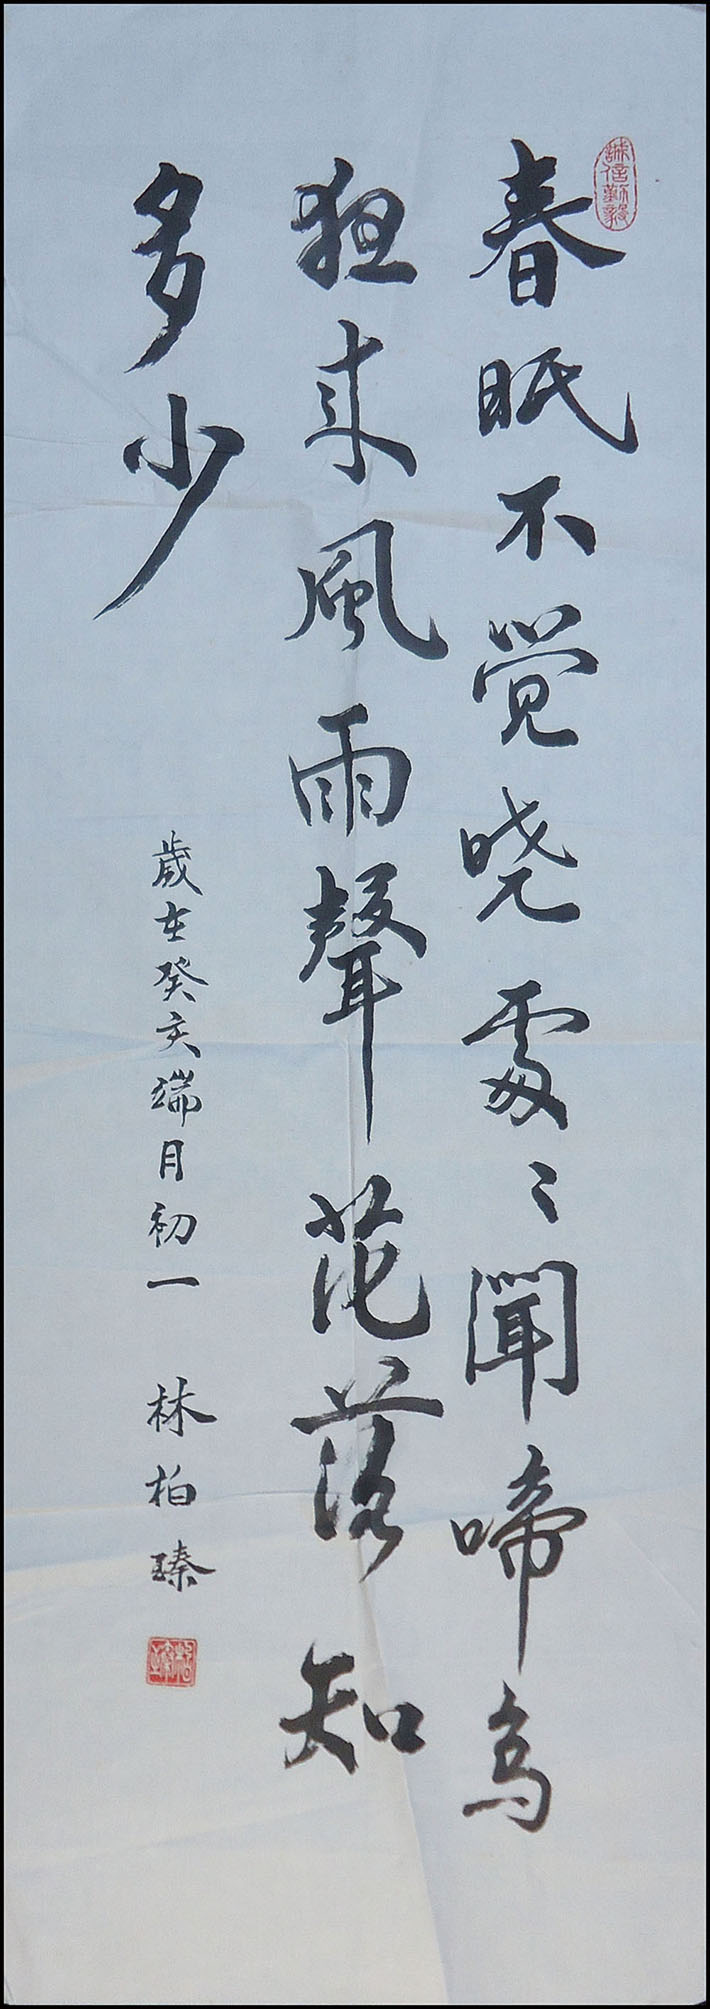 誠信勤毅
春眠不覺晓處〻聞啼鳥
来風雨聲花落知
多少
歲在癸亥端月初一 林柏臻